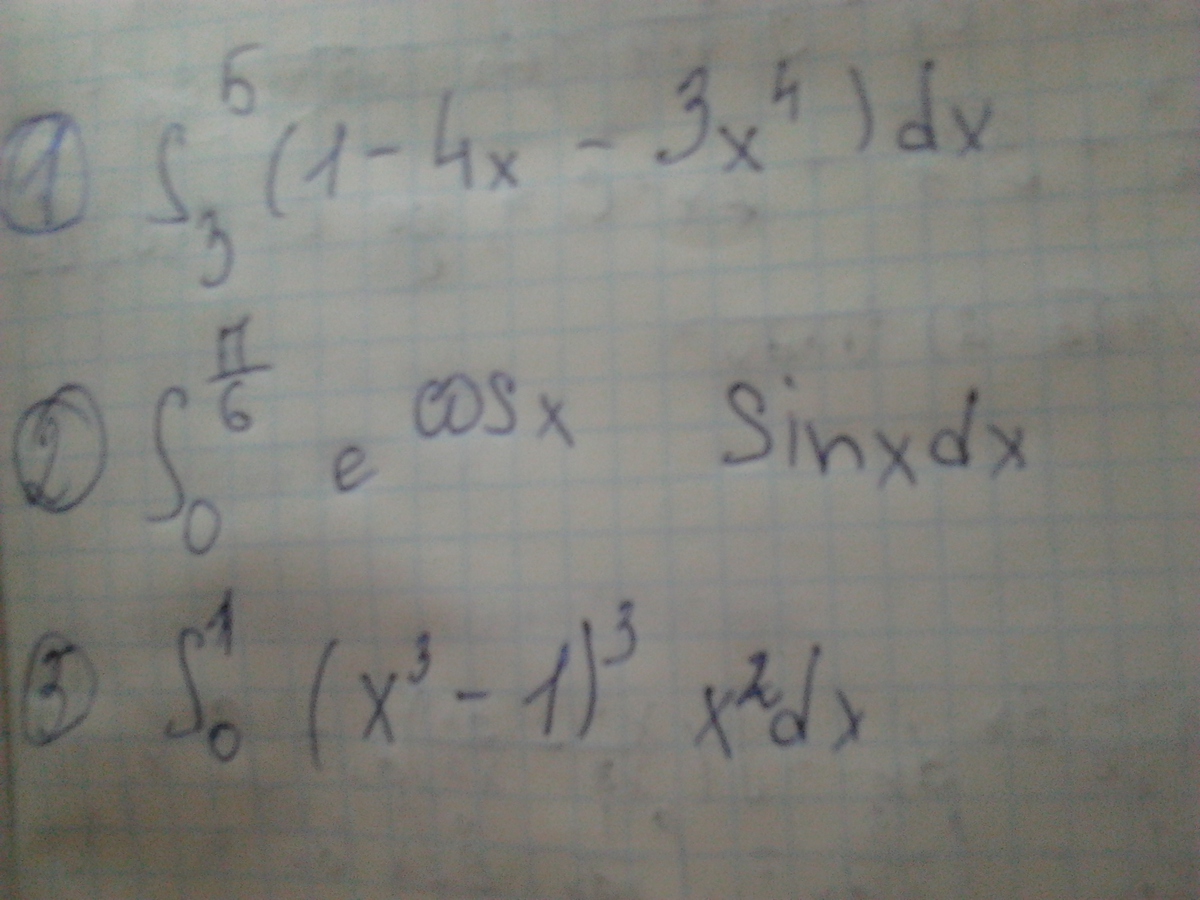 ① ∫₃⁵ (1 - 4x - 3x⁴) dx
② ∫₀^(π/6) e^(cos x) sin x dx
③ ∫₀¹ (x³ - 1)³ x² dx